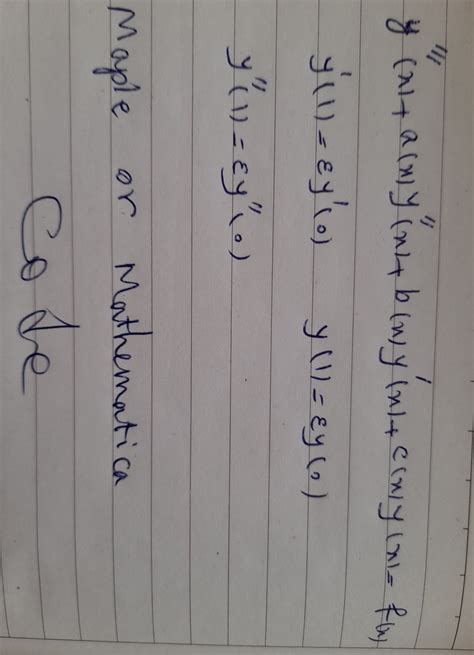 y'''(x) + a(x)y''(x) + b(x)y'(x) + c(x)y(x) = f(x)
y'(1) = εy'(0) y(1) = εy(0)
y''(1) = εy''(0)
Maple or Mathematica
Code